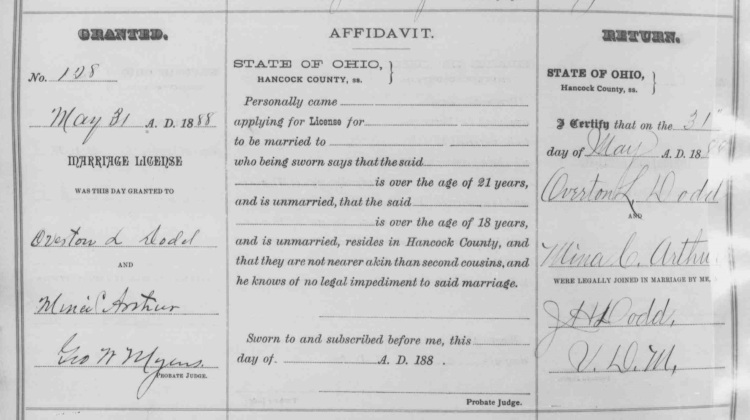 GRANTED.
No. 108
May 31 A. D. 1888
MARRIAGE LICENSE
WAS THIS DAY GRANTED TO
Overton L Dodd
AND
Mina C Arthur
Geo W Myers.
PROBATE JUDGE.
AFFIDAVIT.
STATE OF OHIO, }
HANCOCK COUNTY, ss.
Personally came
applying for License for
to be married to
who being sworn says that the said
is over the age of 21 years,
and is unmarried, that the said
is over the age of 18 years,
and is unmarried, resides in Hancock County, and
that they are not nearer akin than second cousins, and
he knows of no legal impediment to said marriage.
Sworn to and subscribed before me, this
day of A. D. 188 .
Probate Judge.
RETURN.
STATE OF OHIO, }
Hancock County, ss.
I Certify that on the 31
day of May A. D. 188
Overton L Dodd
AND
Mina C. Arthu
WERE LEGALLY JOINED IN MARRIAGE BY ME,
J H Dodd,
V. D. M,